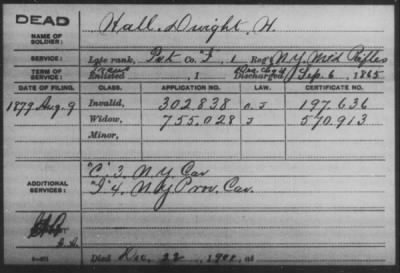 DEAD
NAME OF SOLDIER: Hall, Dwight, H.
SERVICE: Late rank, Pvt Co. "F", 1 Reg't N.Y. Mt'd Rifles
TERM OF SERVICE: Enlisted , 1 Discharged Sep. 6, 1865
DATE OF FILING. CLASS. APPLICATION NO. LAW. CERTIFICATE NO.
1879 Aug. 9 Invalid, 302.838 197.636
Widow, 755.028 570.913
Minor,
ADDITIONAL SERVICES: "C", 3. N.Y. Cav
"I" 4. N.Y. Prov. Cav.
Died Dec. 22, 1901, at